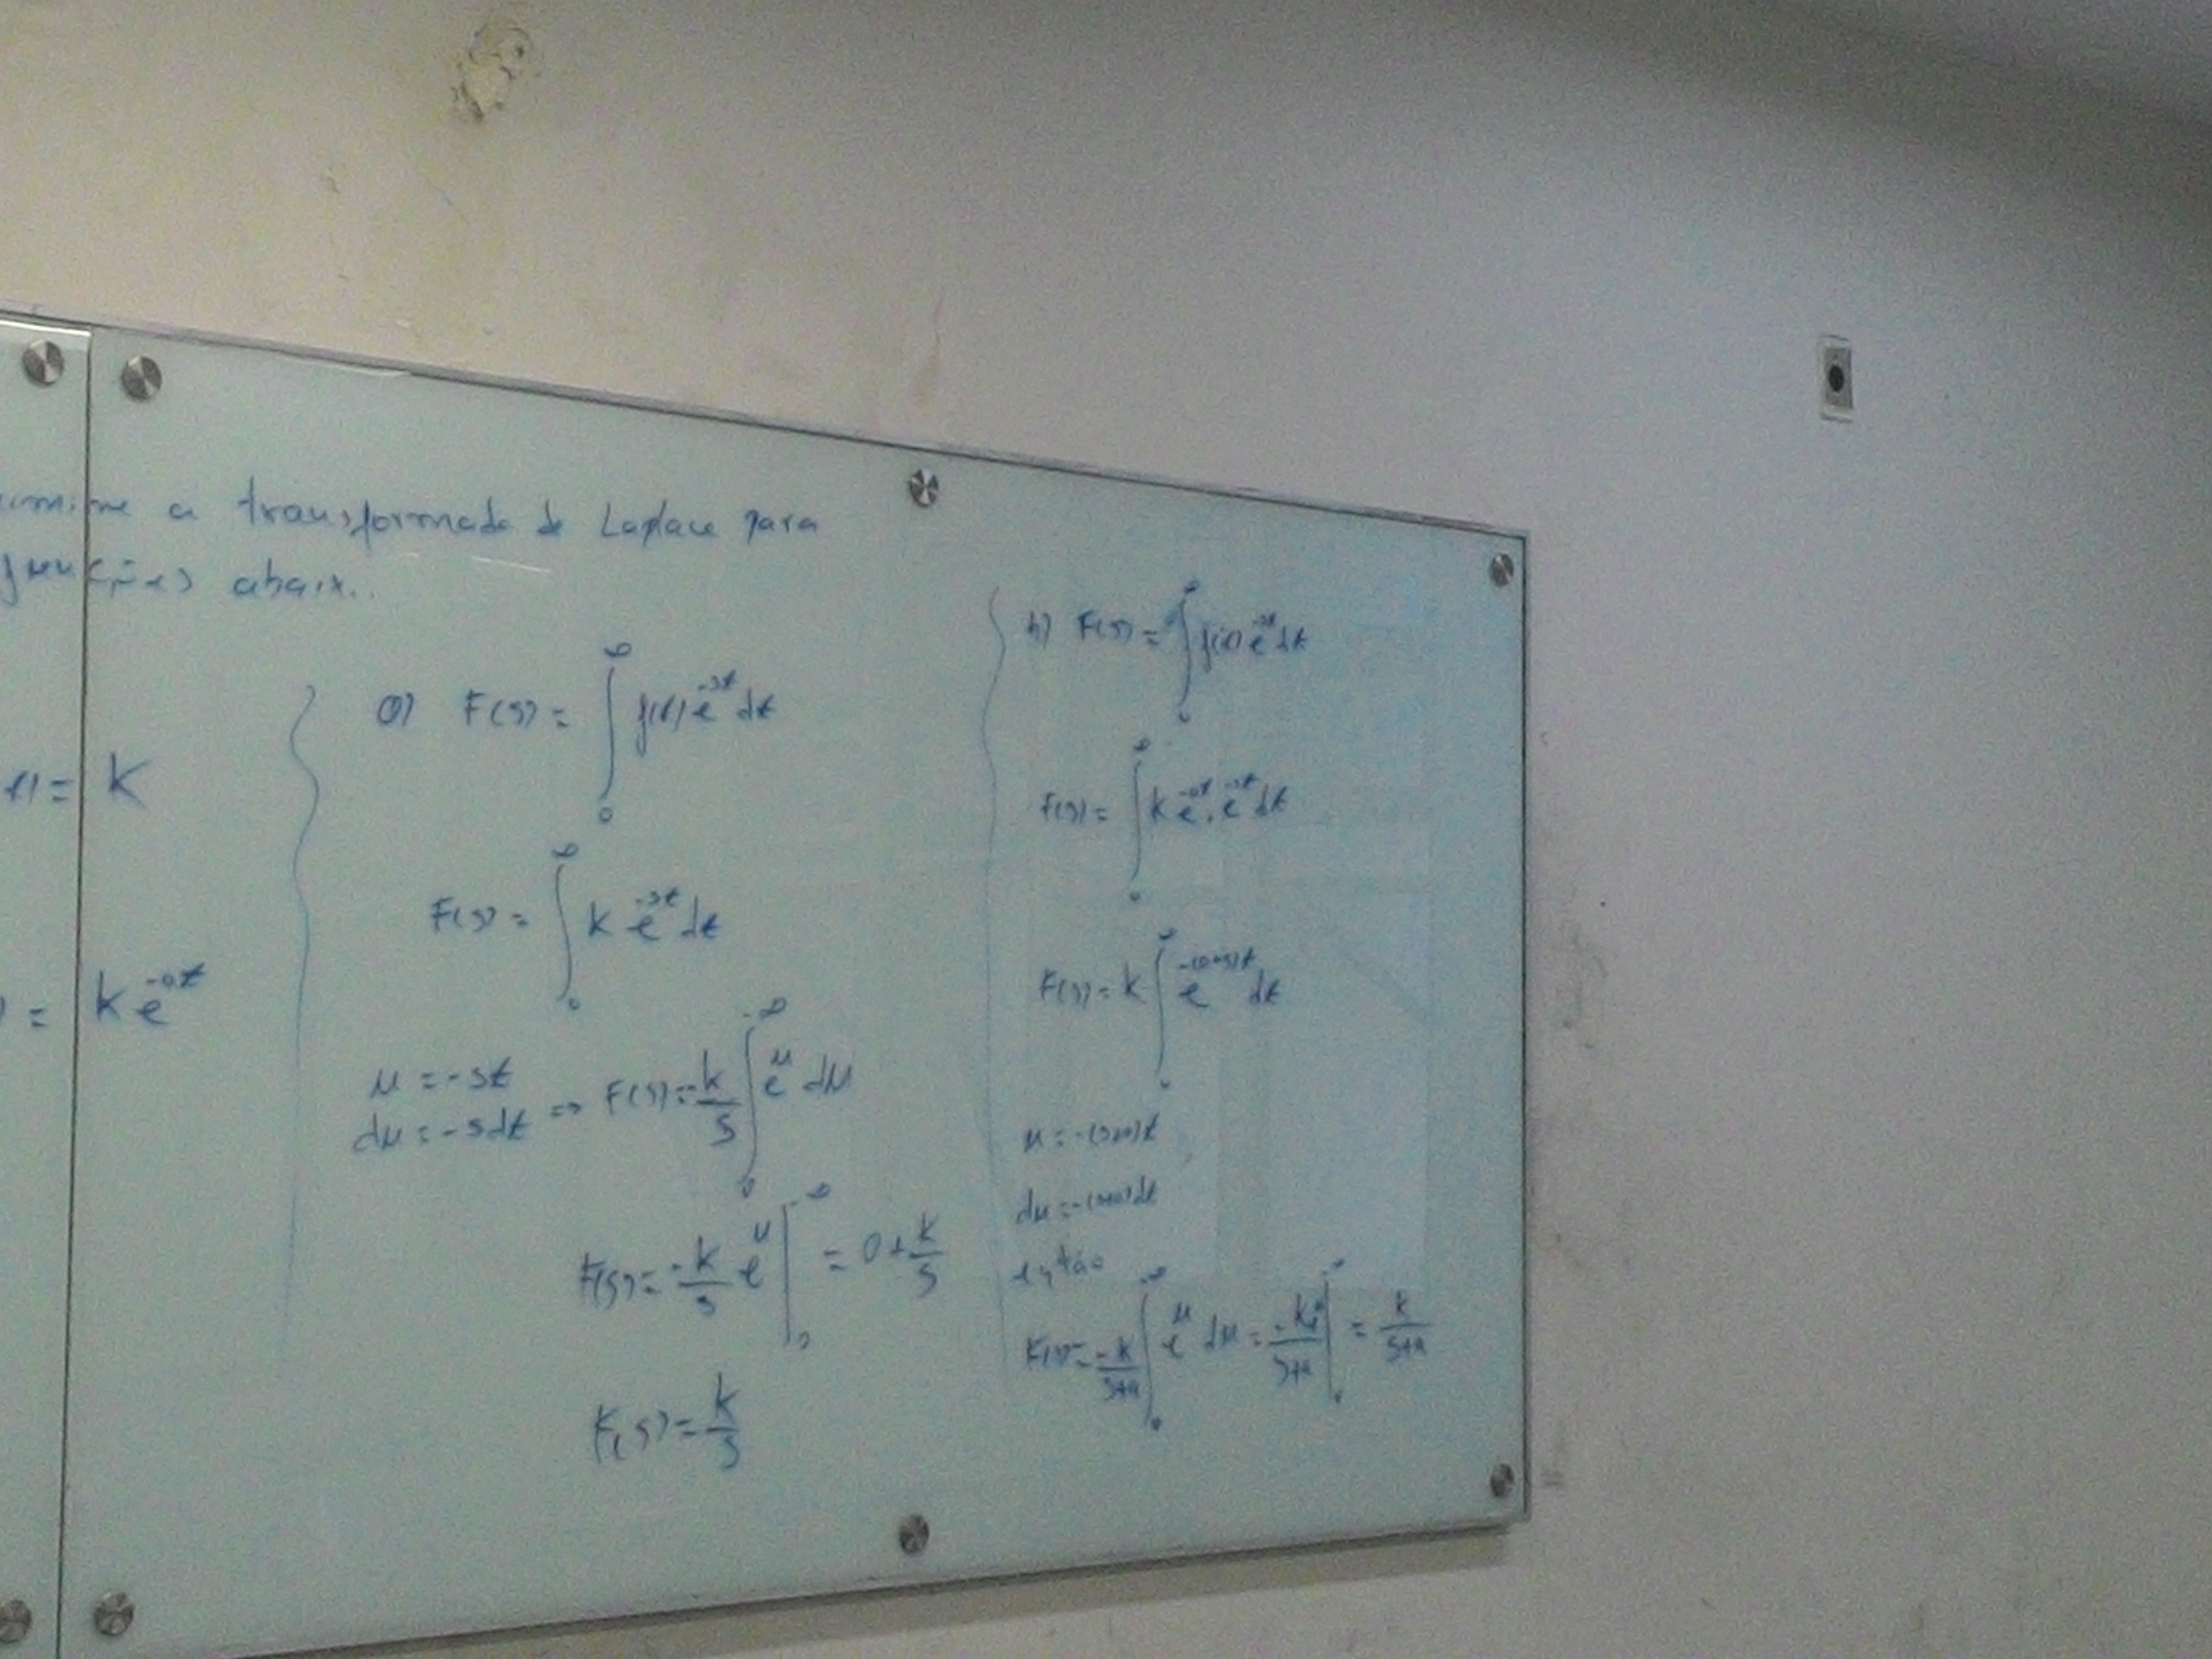 a transformada de Laplace para
funções abaix..
= K
= k e^{-at}
a) F(s) = ∫_0^∞ f(t) e^{-st} dt
F(s) = ∫_0^∞ k e^{-st} dt
u = -st
du = -sdt => F(s) = -k/s ∫_0^{-∞} e^u du
F(s) = -k/s e^u |_0^{-∞} = 0 + k/s
F(s) = k/s
b) F(s) = ∫_0^∞ f(t) e^{-st} dt
F(s) = ∫_0^∞ k e^{-at} . e^{-st} dt
F(s) = k ∫_0^∞ e^{-(a+s)t} dt
u = -(s+a)t
du = -(s+a)dt
então
F(s) = -k/s+a ∫_0^{-∞} e^u du = -k e^u/s+a |_0^{-∞} = k/s+a